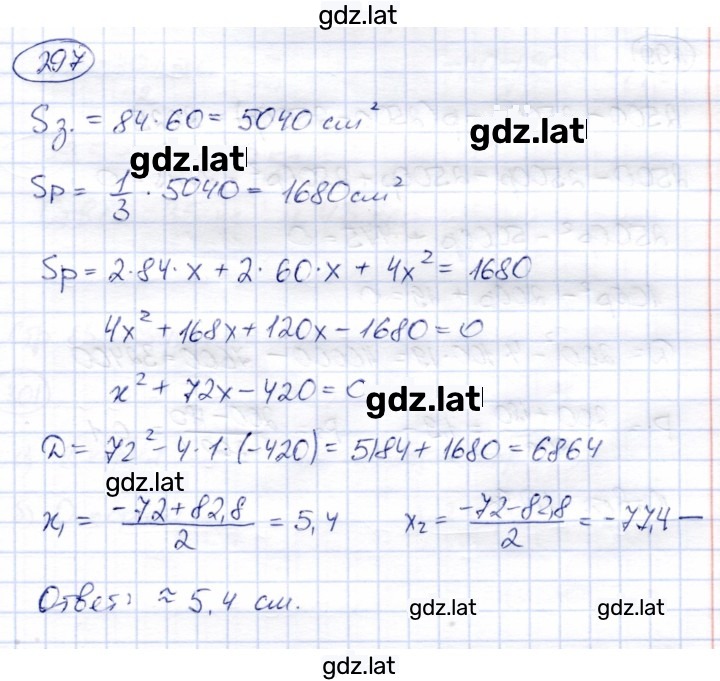 gdz.lat
297
Sз. = 84·60 = 5040 см²
gdz.lat
gdz.lat
Sp = 1/3 · 5040 = 1680 см²
Sp = 2·84·x + 2·60·x + 4x² = 1680
4x² + 168x + 120x – 1680 = 0
x² + 72x – 420 = 0
gdz.lat
D = 72² – 4·1·(–420) = 5184 + 1680 = 6864
gdz.lat
x₁ = (–72+82,8)/2 = 5,4 x₂ = (–72–82,8)/2 = –77,4 —
Ответ: ≈ 5,4 см.
gdz.lat gdz.lat
gdz.lat